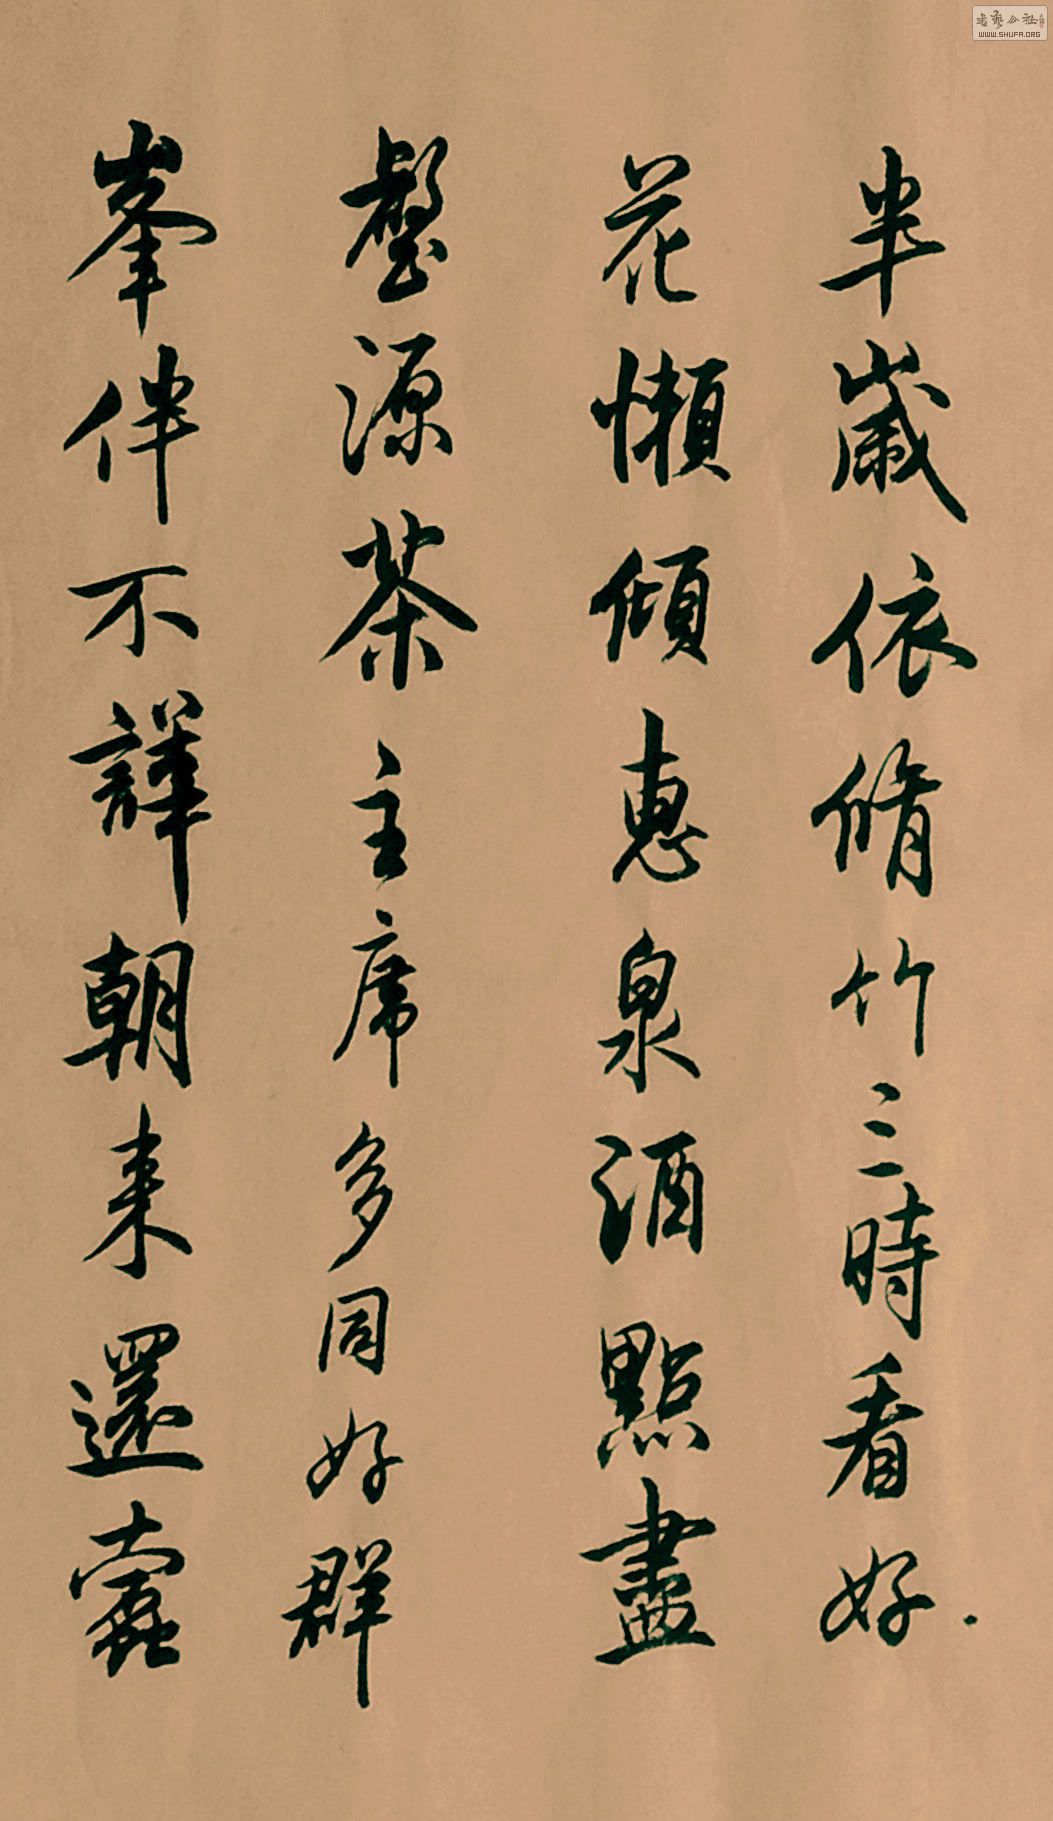 半歲依脩竹三時看好
花懶傾惠泉酒點盡
壑源茶主席多同好群
峯伴不譁朝来還蠹
書藝公社
WWW.SHUFA.ORG